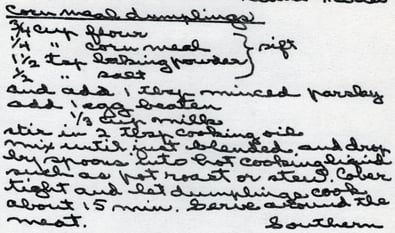 Corn meal dumplings
3/4 cup flour
1/4 " corn meal
1 1/2 tsp baking powder } sift
1/2 " salt
and add 1 tbsp minced parsley
add 1 egg beaten
1/3 cup milk
stir in 2 tbsp cooking oil
mix until just blended and drop
by spoons into hot cooking liquid
such as pot roast or stew. Cover
tight and let dumplings cook
about 15 min. Serve around the
meat. Southern